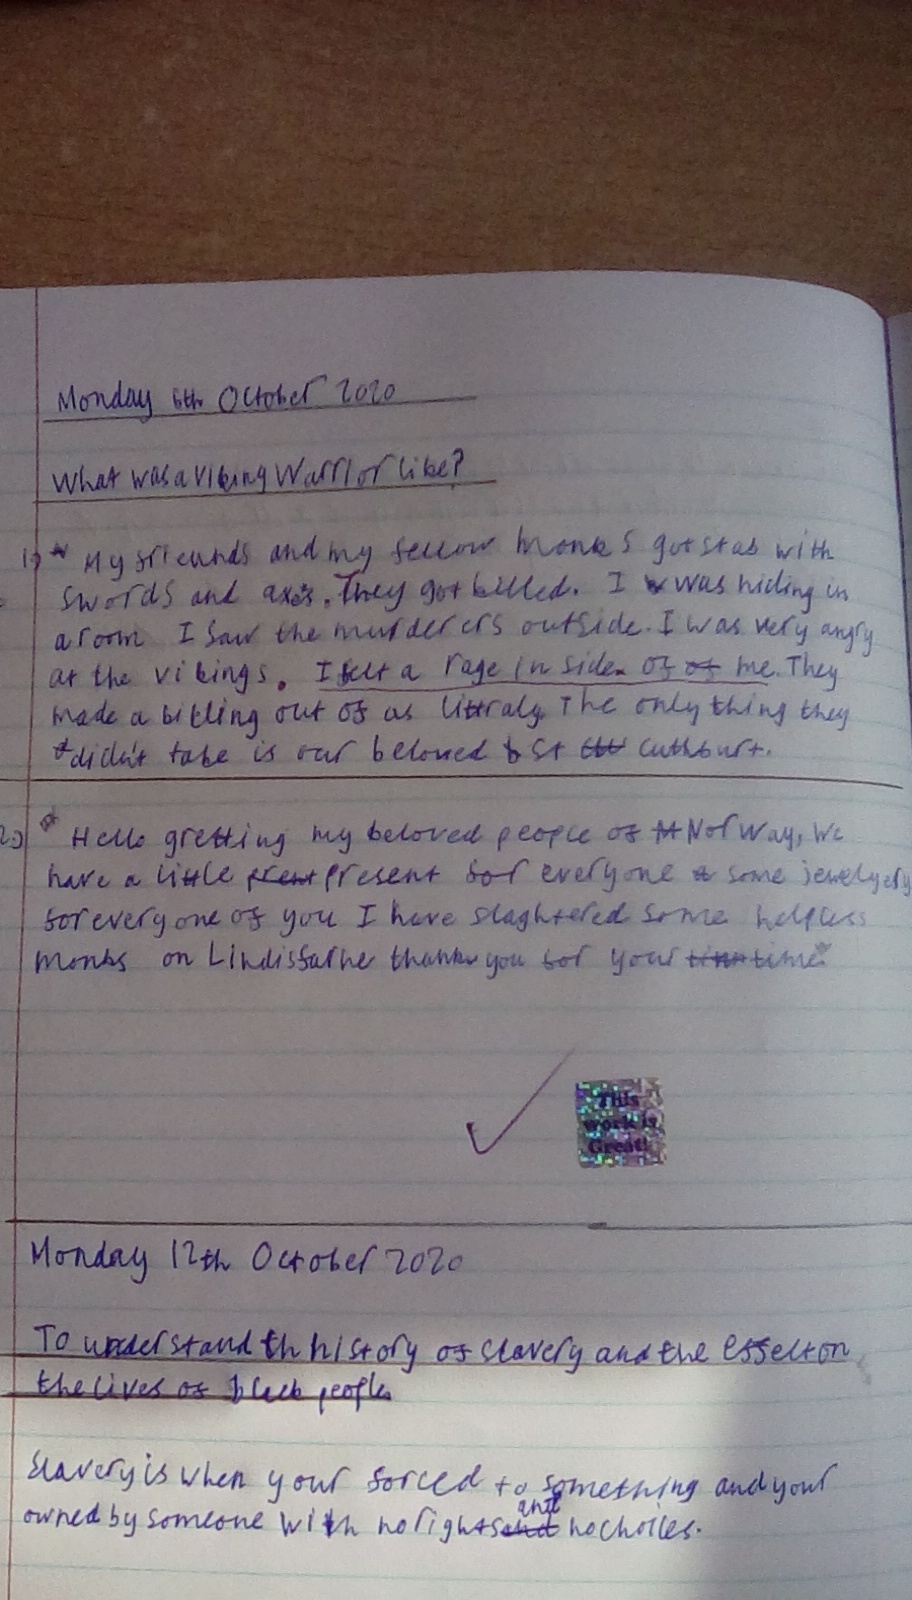 Monday 6th October 2020
What was a viking Warrior like?
1) My friends and my fellow monks got stab with
swords and axes. They got killed. I was hiding in
a room I saw the murderers outside. I was very angry
at the vikings. I felt a rage in side. of of me. They
made a killing out of us littraly. The only thing they
didn't take is our beloved St Cuthburt.
2) Hello gretting my beloved people of Norway, We
have a little present for everyone some jewelyery
for every one of you I have slaghtered some helpless
monks on Lindisfarne thank you for your time.
This
work is
Great!
Monday 12th October 2020
To understand th history of slavery and the effect on
the lives of black people
Slavery is when your forced to something and your
owned by someone with no rights and no choices.